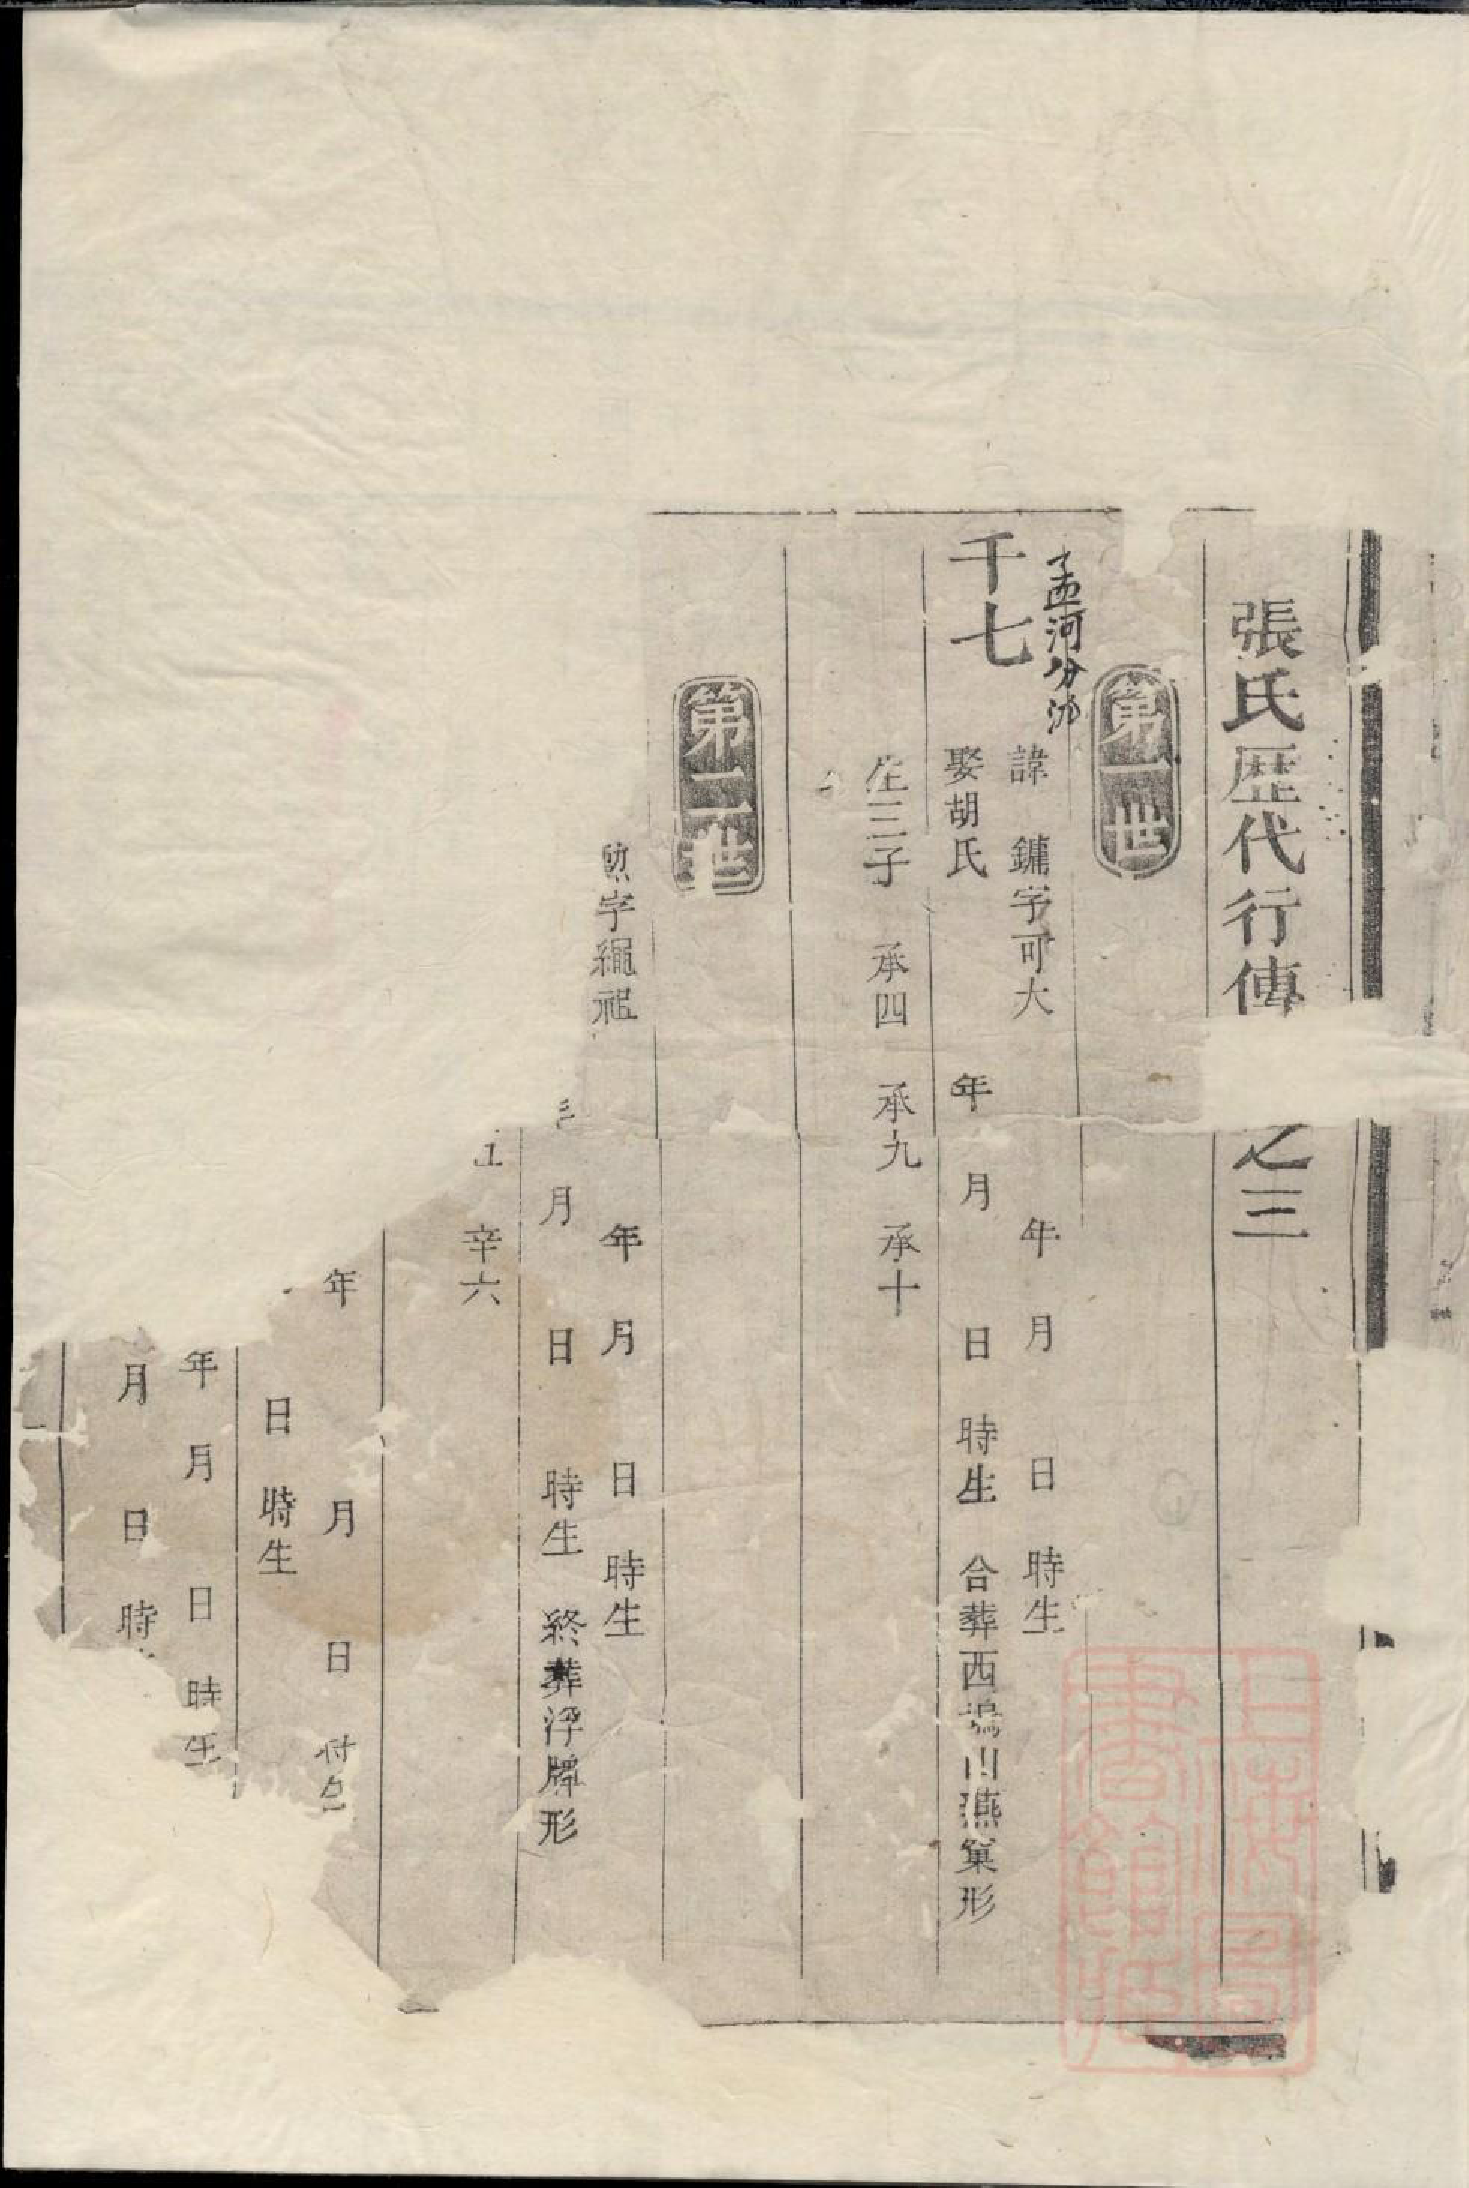 張氏歷代行傳之三
第一世
孟河分派
千七
諱 鏞字可大 年 月 日 時生
娶胡氏 年 月 日 時生 合葬西塢山燕窠形
生三子 承四 承九 承十
第二世
字繩祖 年 月 日 時生
月 日 時生 終葬浮牌形
辛六
年 月 日
日 時生
年 月 日 時生
月 日 時
上海圖書館藏